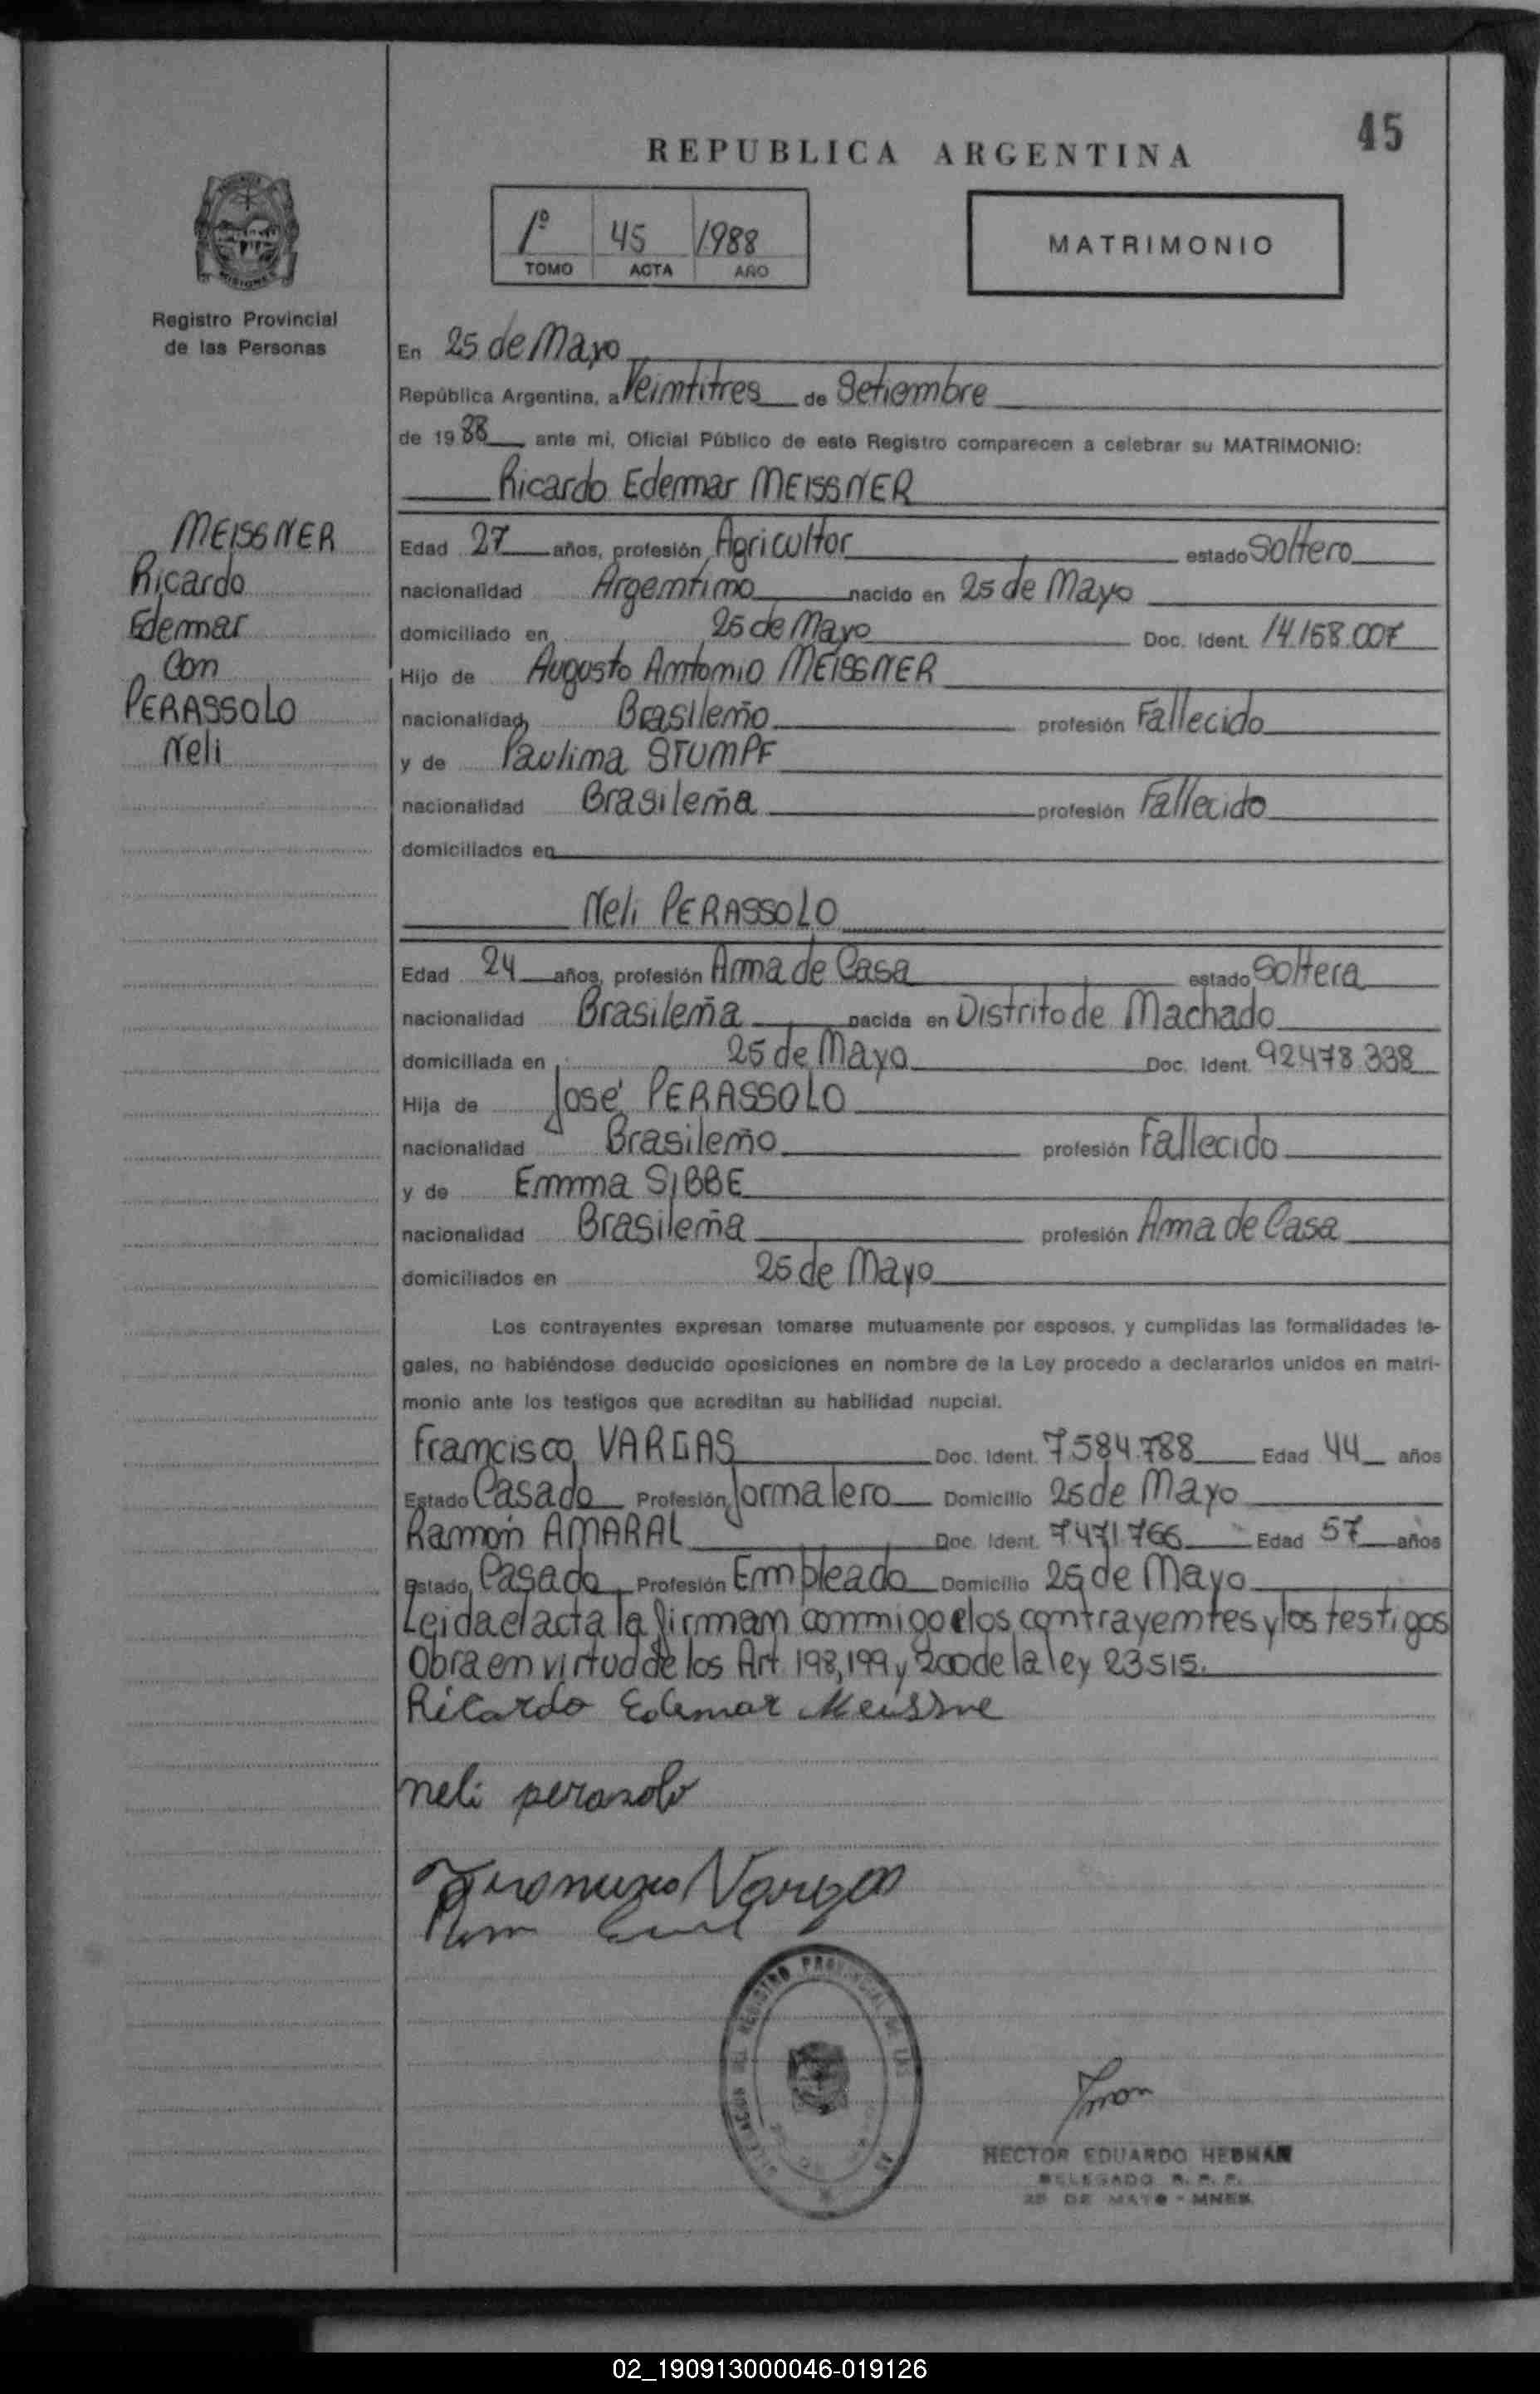 45
REPUBLICA ARGENTINA
1º 45 1988
TOMO ACTA AÑO
MATRIMONIO
MISIONES
Registro Provincial
de las Personas
En 25 de Mayo
República Argentina, a Veintitres de Setiembre
de 1988 ante mí, Oficial Público de este Registro comparecen a celebrar su MATRIMONIO:
Ricardo Edemar MEISSNER
MEISSNER
Ricardo
Edemar
Con
PERASSOLO
Neli
Edad 27 años, profesión Agricultor estado Soltero
nacionalidad Argentino nacido en 25 de Mayo
domiciliado en 25 de Mayo Doc. Ident. 14.158.007
Hijo de Augusto Antonio MEISSNER
nacionalidad Brasileño profesión Fallecido
y de Paulina STUMPF
nacionalidad Brasileña profesión Fallecido
domiciliados en
Neli PERASSOLO
Edad 24 años, profesión Ama de Casa estado Soltera
nacionalidad Brasileña nacida en Distrito de Machado
domiciliada en 25 de Mayo Doc. Ident. 92.478.338
Hija de José PERASSOLO
nacionalidad Brasileño profesión Fallecido
y de Emma SIBBE
nacionalidad Brasileña profesión Ama de Casa
domiciliados en 25 de Mayo
Los contrayentes expresan tomarse mutuamente por esposos, y cumplidas las formalidades le-
gales, no habiéndose deducido oposiciones en nombre de la Ley procedo a declararlos unidos en matri-
monio ante los testigos que acreditan su habilidad nupcial.
Francisco VARGAS Doc. Ident. 7.584.788 Edad 44 años
Estado Casado Profesión Jornalero Domicilio 25 de Mayo
Ramón AMARAL Doc. Ident. 7.471.766 Edad 57 años
Estado Casado Profesión Empleado Domicilio 25 de Mayo
Leida el acta la firman conmigo los contrayentes y los testigos
Obra en virtud de los Art. 198, 199 y 200 de la ley 23.515.
Ricardo Edemar Meissne
neli perasolo
Francisco Vargas
REGISTRO PROVINCIAL DE LAS
HECTOR EDUARDO HEBMAN
DELEGADO R. P. P.
25 DE MAYO - MNES.
02_190913000046-019126